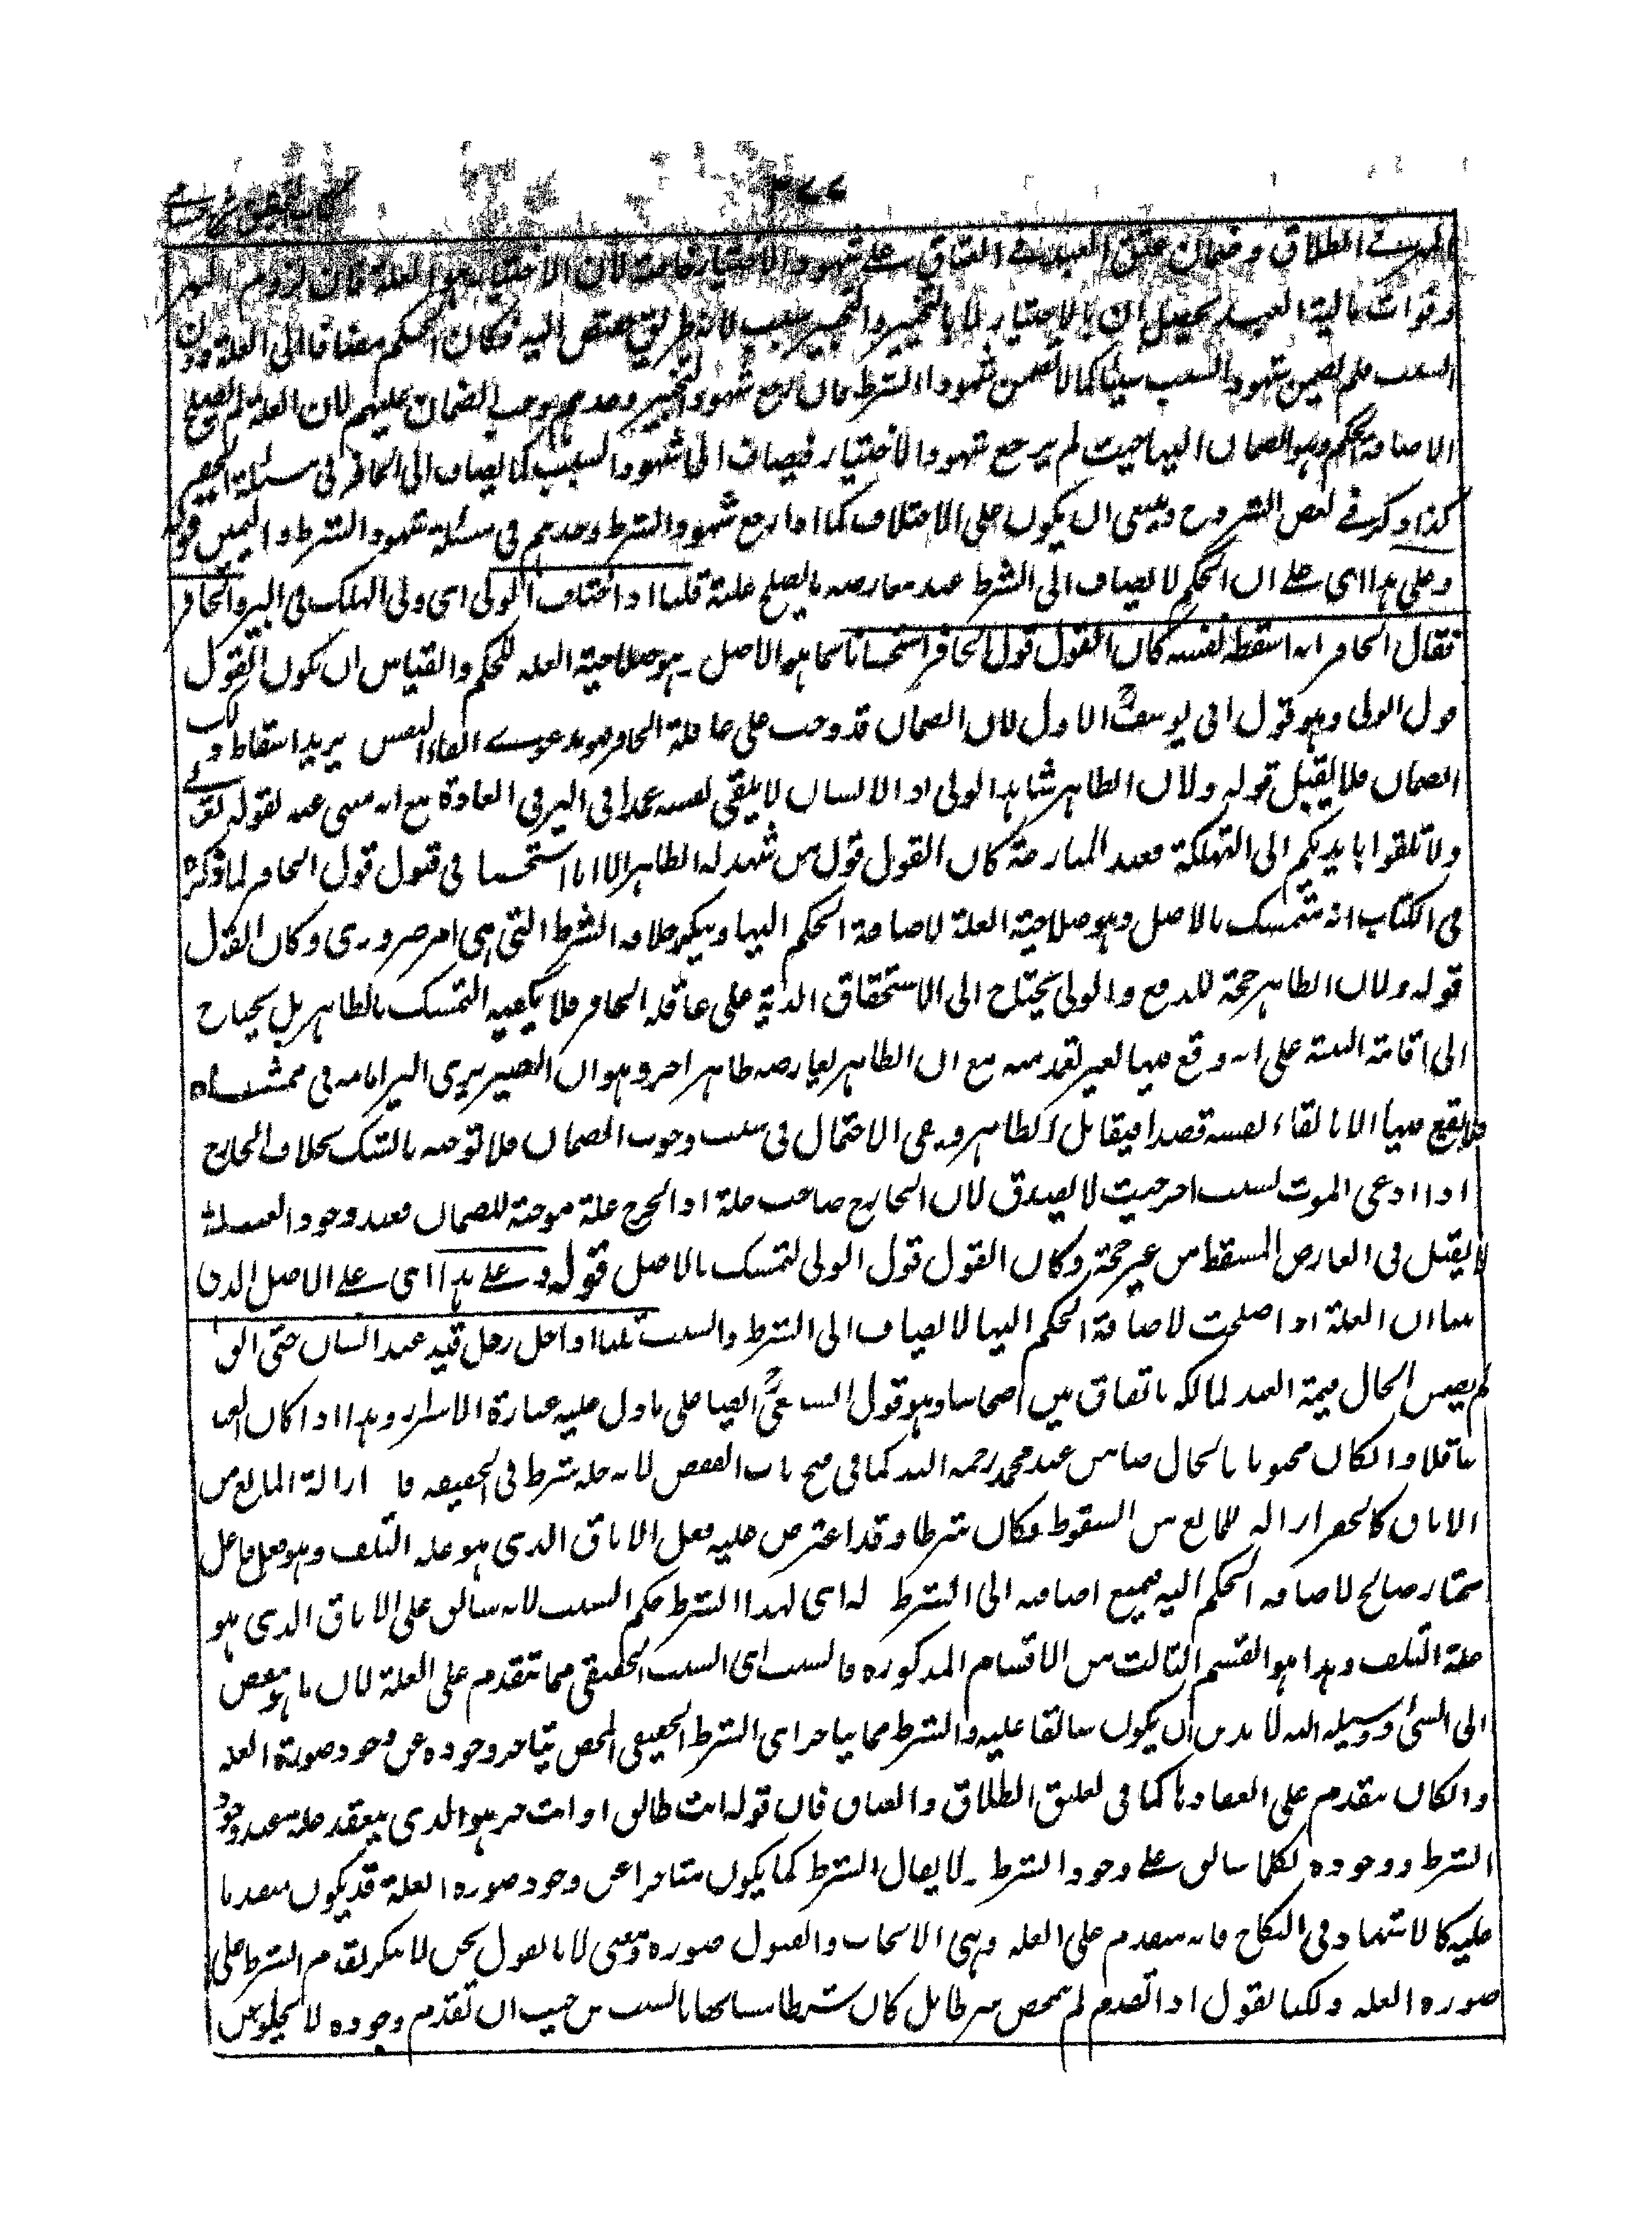 ٣٤٤
المهر في الطلاق وضمان عتق العبد في العتاق على شهود الاختيار خاصة لان الاختيار هو العلة فان لزوم المهر
وفوات مالية العبد يحصلان بالاختيار لا بالتخيير والتخيير سبب لانه طريق مفض اليه فكان الحكم مضافا الى العلة دون
السبب فلم يضمن شهود السبب شيئا كما لا يضمن شهود الشرط فان رجع شهود التخيير وحدهم يوجب الضمان عليهم لان العلة لم تصلح
الاضافة الحكم وهو الضمان اليها حيث لم يرجع شهود الاختيار فيضاف الى شهود السبب كما يضاف الى الحافر في مسئلة الحفر
كذا ذكر في بعض الشروح وينبغي ان يكون على الاختلاف كما اذا رجع شهود الشرط وحدهم في مسئلة شهود الشرط واليمين قوله
وعلى هذا اى على ان الحكم لا يضاف الى الشرط عند معارضة ما يصلح علة قلنا اذا اختلف الولى اى ولى الهالك في البير والحافر
فقال الحافر انه اسقط نفسه كان القول قول الحافر استحسانا لما هو الاصل وهو صلاحية العلة للحكم والقياس ان يكون القول
قول الولى وهو قول ابى يوسف الاول لان الضمان قد وجب على عاقلة الحافر فهو بدعوى القاء النفس يريد اسقاط ذلك
الضمان فلا يقبل قوله ولان الظاهر شاهد الولى اذ الانسان لا يلقى نفسه عمدا في البير في العادة مع انه منهى عنه لقوله تعالى
ولا تلقوا بايديكم الى التهلكة فعند المنازعة كان القول قول من شهد له الظاهر الا انا استحسنا في قبول قول الحافر لما ذكر
في الكتاب انه متمسك بالاصل وهو صلاحية العلة لاضافة الحكم اليها وينكر خلافة الشرط التي هي امر ضروري وكان القول
قوله ولان الظاهر حجة للدفع والولى يحتاج الى الاستحقاق الدية على عاقلة الحافر فلا يكفيه التمسك بالظاهر بل يحتاج
الى اقامة البينة على انه وقع فيها بغير تعمد منه مع ان الظاهر يعارضه ظاهر اخر وهو ان البصير يرى البير امامه في ممشاه
فلا يقع فيها الا بالقاء نفسه قصدا فيقابل الظاهر وبقى الاحتمال في سبب وجوب الضمان فلا نوجبه بالشك بخلاف الجارح
اذا ادعى الموت بسبب اخر حيث لا يصدق لان الجارح صاحب علة اذ الجرح علة موجبة للضمان فعند وجود العلة
لا يقبل في العارض المسقط من غير حجة وكان القول قول الولى لتمسكه بالاصل قوله وعلى هذا اى على الاصل الذى
بينا ان العلة اذا صلحت لاضافة الحكم اليها لا يضاف الى الشرط والسبب قلنا اذا حل رجل قيد عبد انسان حتى ابق
لم يضمن الحال قيمة العبد لمالكه باتفاق بين اصحابنا وهو قول الشافعى ايضا على ما دل عليه عبارة الاسرار وهذا اذا كان العبد
عاقلا وان كان مجنونا فالحال ضامن عند محمد رحمه الله كما في فتح باب القفص لانه حله شرط في الحقيقة فا ازالة المانع من
الاباق كالحفر ازالة للمانع من السقوط فكان شرطا وقد اعترض عليه فعل الاباق الذى هو علة التلف وهو فعل فاعل
مختار صالح لاضافة الحكم اليه فيمنع اضافته الى الشرط له اى لهذا الشرط حكم السبب لانه سابق على الاباق الذى هو
علة التلف وهذا هو القسم الثالث من الاقسام المذكورة فالسبب اى السبب الحقيقى مما يتقدم على العلة لان ما هو مفض
الى الشئ ووسيلة اليه لا بد من ان يكون سابقا عليه والشرط مما يتاخر اى الشرط الحقيقى المحض يتاخر وجوده عن وجود صورة العلة
وان كان يتقدم على انعقادها كما في تعليق الطلاق والعتاق فان قوله انت طالق او انت حر هو الذى ينعقد علة عند وجود
الشرط ووجوده تكلما سابق على وجود الشرط ۔ لا يقال الشرط كما يكون متاخرا عن وجود صورة العلة قد يكون متقدما
عليه كالاشهاد في النكاح فانه متقدم على العلة وهى الايجاب والقبول صورة ومعنى لانا نقول نحن لا ننكر تقدم الشرط على
صورة العلة ولكنا نقول اذا تقدم لم يتمحض شرطا بل كان شرطا مشابها بالسبب من حيث ان تقدم وجوده لا يخلو عن